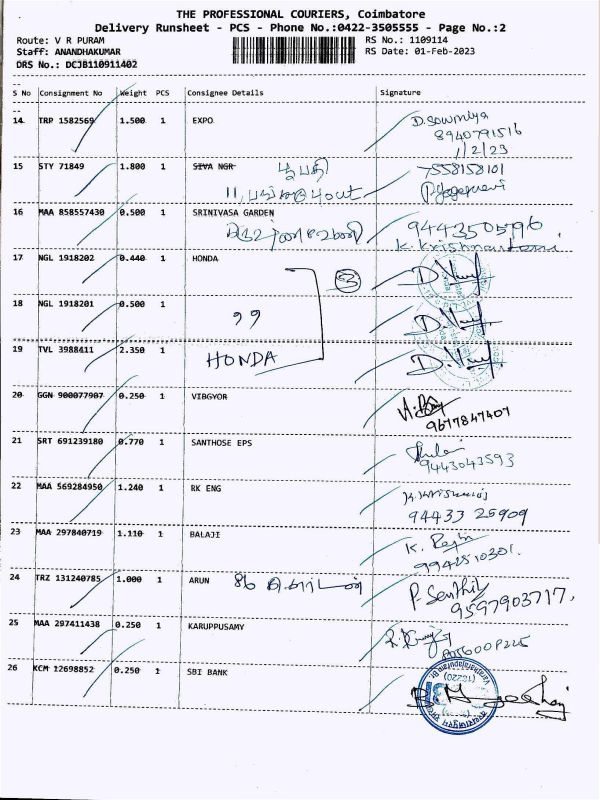 THE PROFESSIONAL COURIERS, Coimbatore
Delivery Runsheet - PCS - Phone No.:0422-3505555 - Page No.:2
Route: V R PURAM
RS No.: 1109114
Staff: ANANDHAKUMAR
RS Date: 01-Feb-2023
DRS No.: DCJB110911402
S No Consignment No Weight PCS Consignee Details Signature
14 TRP 1582569 1.500 1 EXPO
D. Sowmiya
8940791516
1/2/23
15 STY 71849 1.800 1 SIVA NGR பூபதி
7558158101
16 MAA 858557430 0.500 1 SRINIVASA GARDEN
9443505796
K. Krishna
17 NGL 1918202 0.440 1 HONDA
3
18 NGL 1918201 0.500 1
,,
19 TVL 3988411 2.350 1
HONDA
20 GGN 900077907 0.250 1 VIBGYOR
9677847407
21 SRT 691239180 0.770 1 SANTHOSE EPS
9443043593
22 MAA 569284950 1.240 1 RK ENG
94433 25909
23 MAA 297840719 1.110 1 BALAJI
K. Raja
9942510301.
24 TRZ 131240785 1.000 1 ARUN
P. Senthil
9597903717,
25 MAA 297411438 0.250 1 KARUPPUSAMY
26 KCM 12698852 0.250 1 SBI BANK